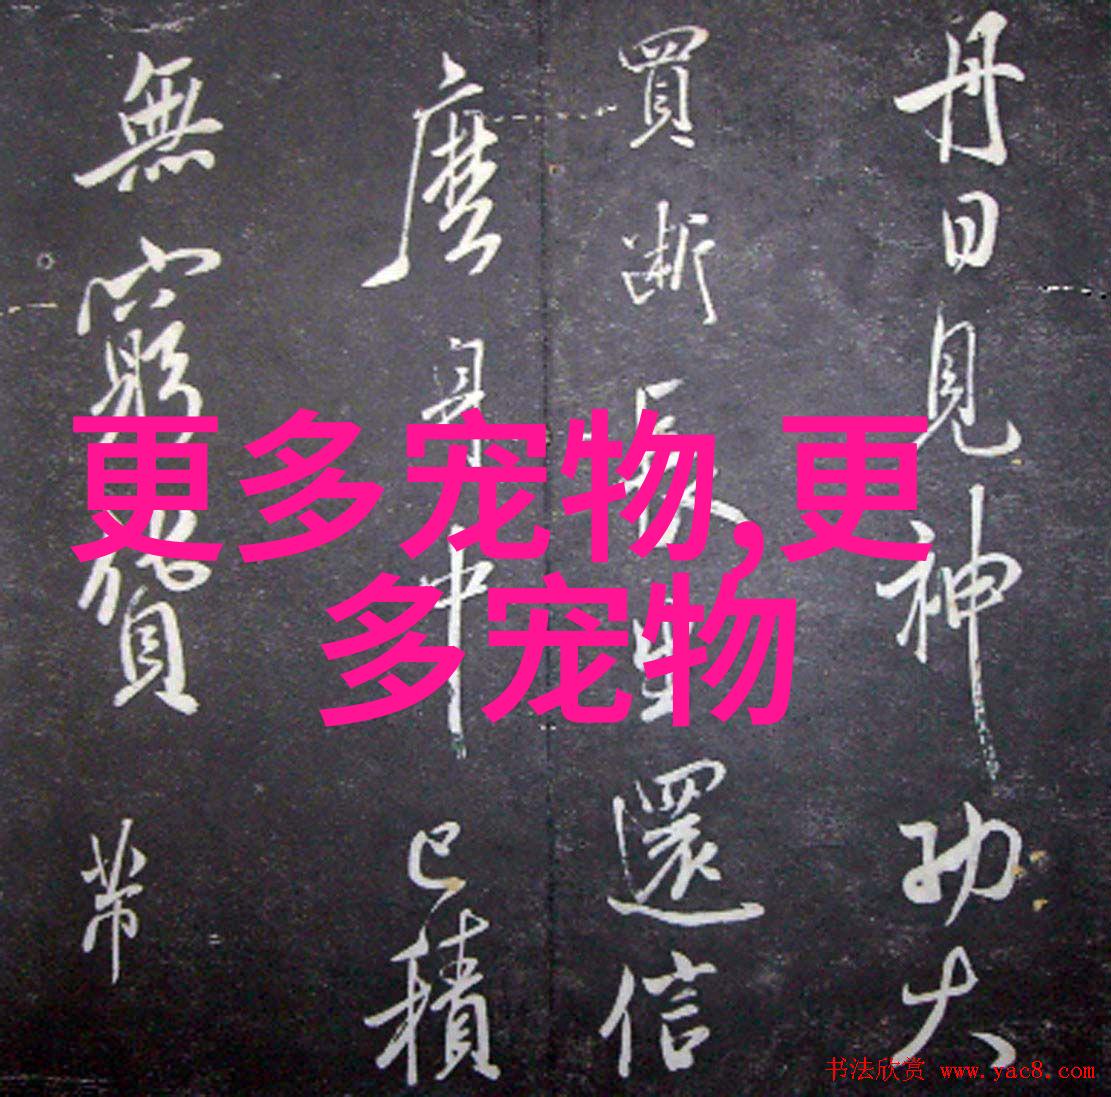 丹日見神功大
買斷長生還信
麼身中已積
無窮貨帶
更多宠物,更
多宠物
书法欣赏 www.yac8.com